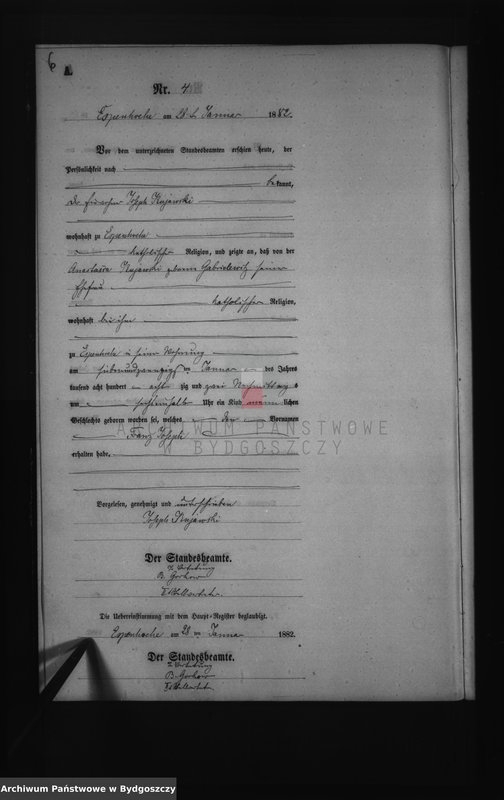 6
A.
Nr. 4
am 28 ten Januar 1882.
Vor dem unterzeichneten Standesbeamten erschien heute, der
Persönlichkeit nach
bekannt,
Joseph Kujawski
wohnhaft zu
katholischer Religion, und zeigte an, daß von der
Anastasia Kujawski geborne seiner
Ehefrau
katholischer Religion,
wohnhaft bei ihm
zu in seiner Wohnung
am siebenundzwanzigsten Januar des Jahres
tausend acht hundert achtzig und zwei Nachmittags
um Uhr ein Kind männlichen
Geschlechts geboren worden sei, welches den Vornamen
Franz Joseph
erhalten habe.
Vorgelesen, genehmigt und unterschrieben
Joseph Kujawski
Der Standesbeamte.
In Vertretung
Die Uebereinstimmung mit dem Haupt-Register beglaubigt.
am 28 ten Januar 1882.
Der Standesbeamte.
In Vertretung
ARCHIWUM PAŃSTWOWE
W BYDGOSZCZY
Archiwum Państwowe w Bydgoszczy